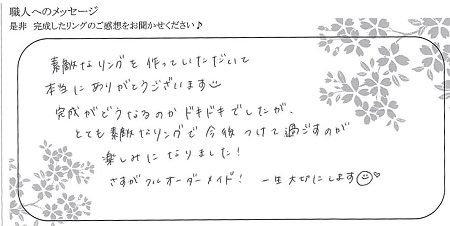 職人へのメッセージ
是非 完成したリングのご感想をお聞かせください♪
素敵なリングを作っていただいて
本当にありがとうございます
完成がどうなるのかドキドキでしたが、
とても素敵なリングで今後つけて過ごすのが
楽しみになりました!
さすがフルオーダーメイド! 一生大切にします♡